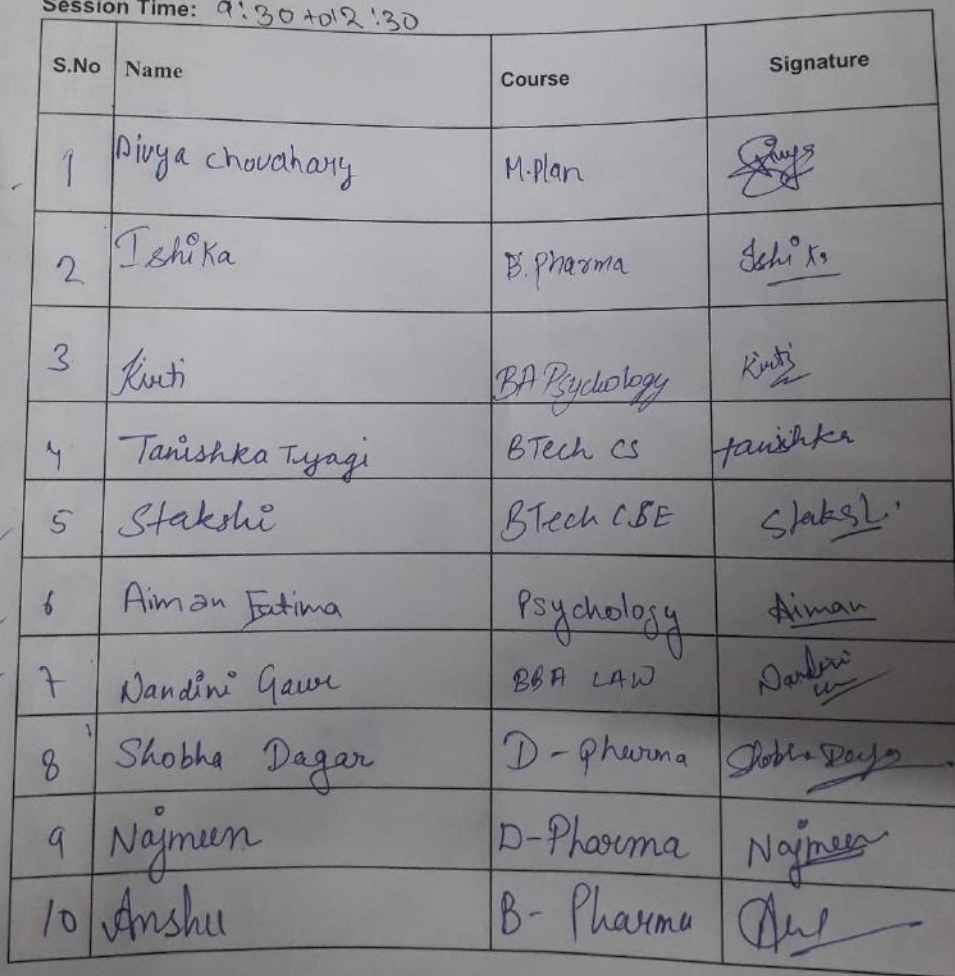 Session Time: 9:30 to 12:30
S.No Name Course Signature
1 Divya choudhary M.Plan
2 Ishika B. Pharma Ishika
3 Kirti BA Psychology Kirti
4 Tanishka Tyagi BTech CS tanishka
5 Stakshi BTech CSE Stakshi
6 Aiman Fatima Psychology Aiman
7 Nandini Gaur BBA LAW Nandini
8 Shobha Dagar D-Pharma Shobha Dagar
9 Najmeen D-Pharma Najmeen
10 Anshu B- Pharma